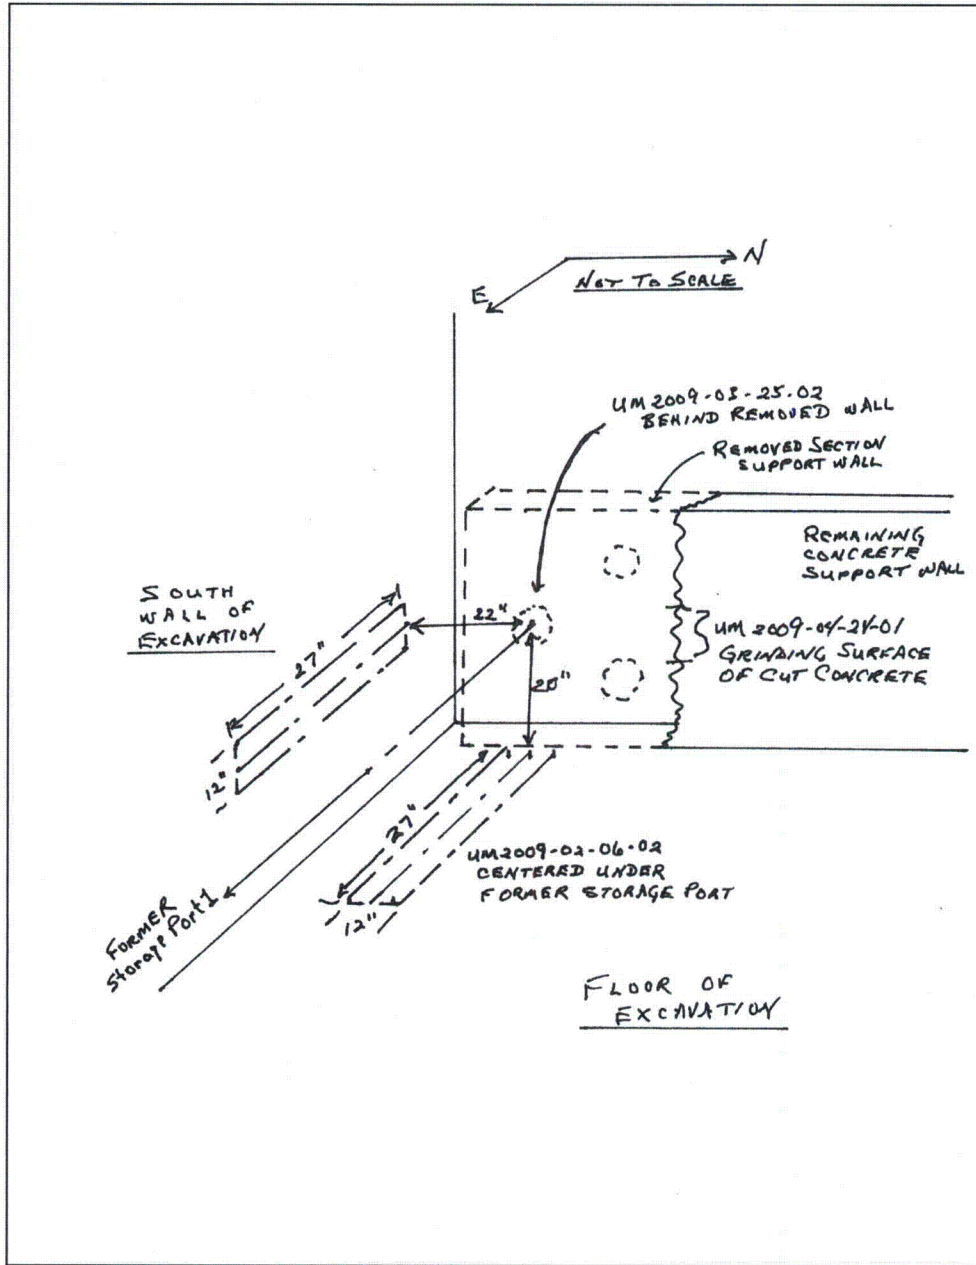 N
NOT TO SCALE
E
UM 2009-03-25-02
BEHIND REMOVED WALL
REMOVED SECTION
SUPPORT WALL
REMAINING
CONCRETE
SUPPORT WALL
SOUTH
WALL OF
EXCAVATION
22"
27"
UM 2009-04-24-01
GRINDING SURFACE
OF CUT CONCRETE
20"
12"
27"
UM2009-02-06-02
CENTERED UNDER
FORMER STORAGE PORT
12"
FORMER
Storage Port 1
FLOOR OF
EXCAVATION